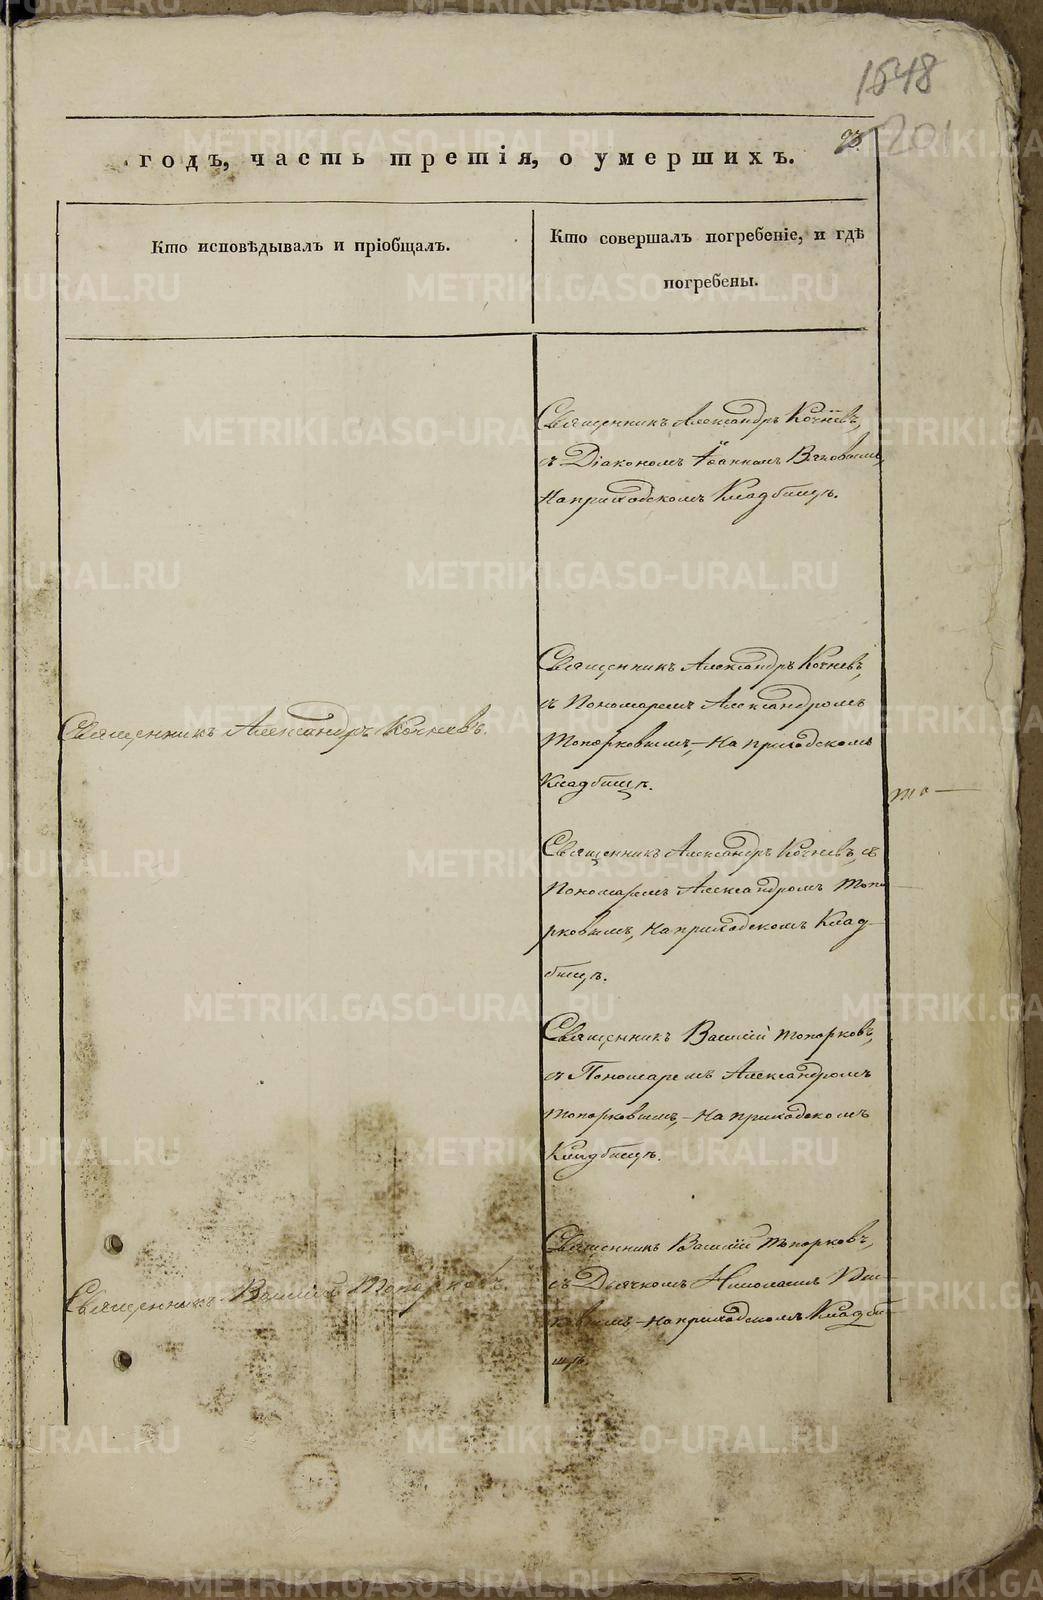 1548
201
годъ, часть третія, о умершихъ.
Кто исповѣдывалъ и пріобщалъ.
Кто совершалъ погребеніе, и гдѣ
погребены.
Священникъ Александръ Кочневъ,
съ Діакономъ Іоанномъ
На приходскомъ Кладбищѣ.
Священникъ Александръ Кочневъ.
Священникъ Александръ Кочневъ,
съ Пономаремъ Александромъ
Топорковымъ, – На приходскомъ
Кладбищѣ.
то —
Священникъ Александръ Кочневъ, съ
Пономаремъ Александромъ Топо
рковымъ, На приходскомъ Клад-
бищѣ.
Священникъ Василій Топорковъ,
съ Пономаремъ Александромъ
Топорковымъ, – На приходскомъ
Кладбищѣ.
Священникъ Василій Топорковъ.
Священникъ Василій Топорковъ,
съ Дьячкомъ Николаемъ
– На приходскомъ Кладби
щѣ.
METRIKI.GASO-URAL.RU